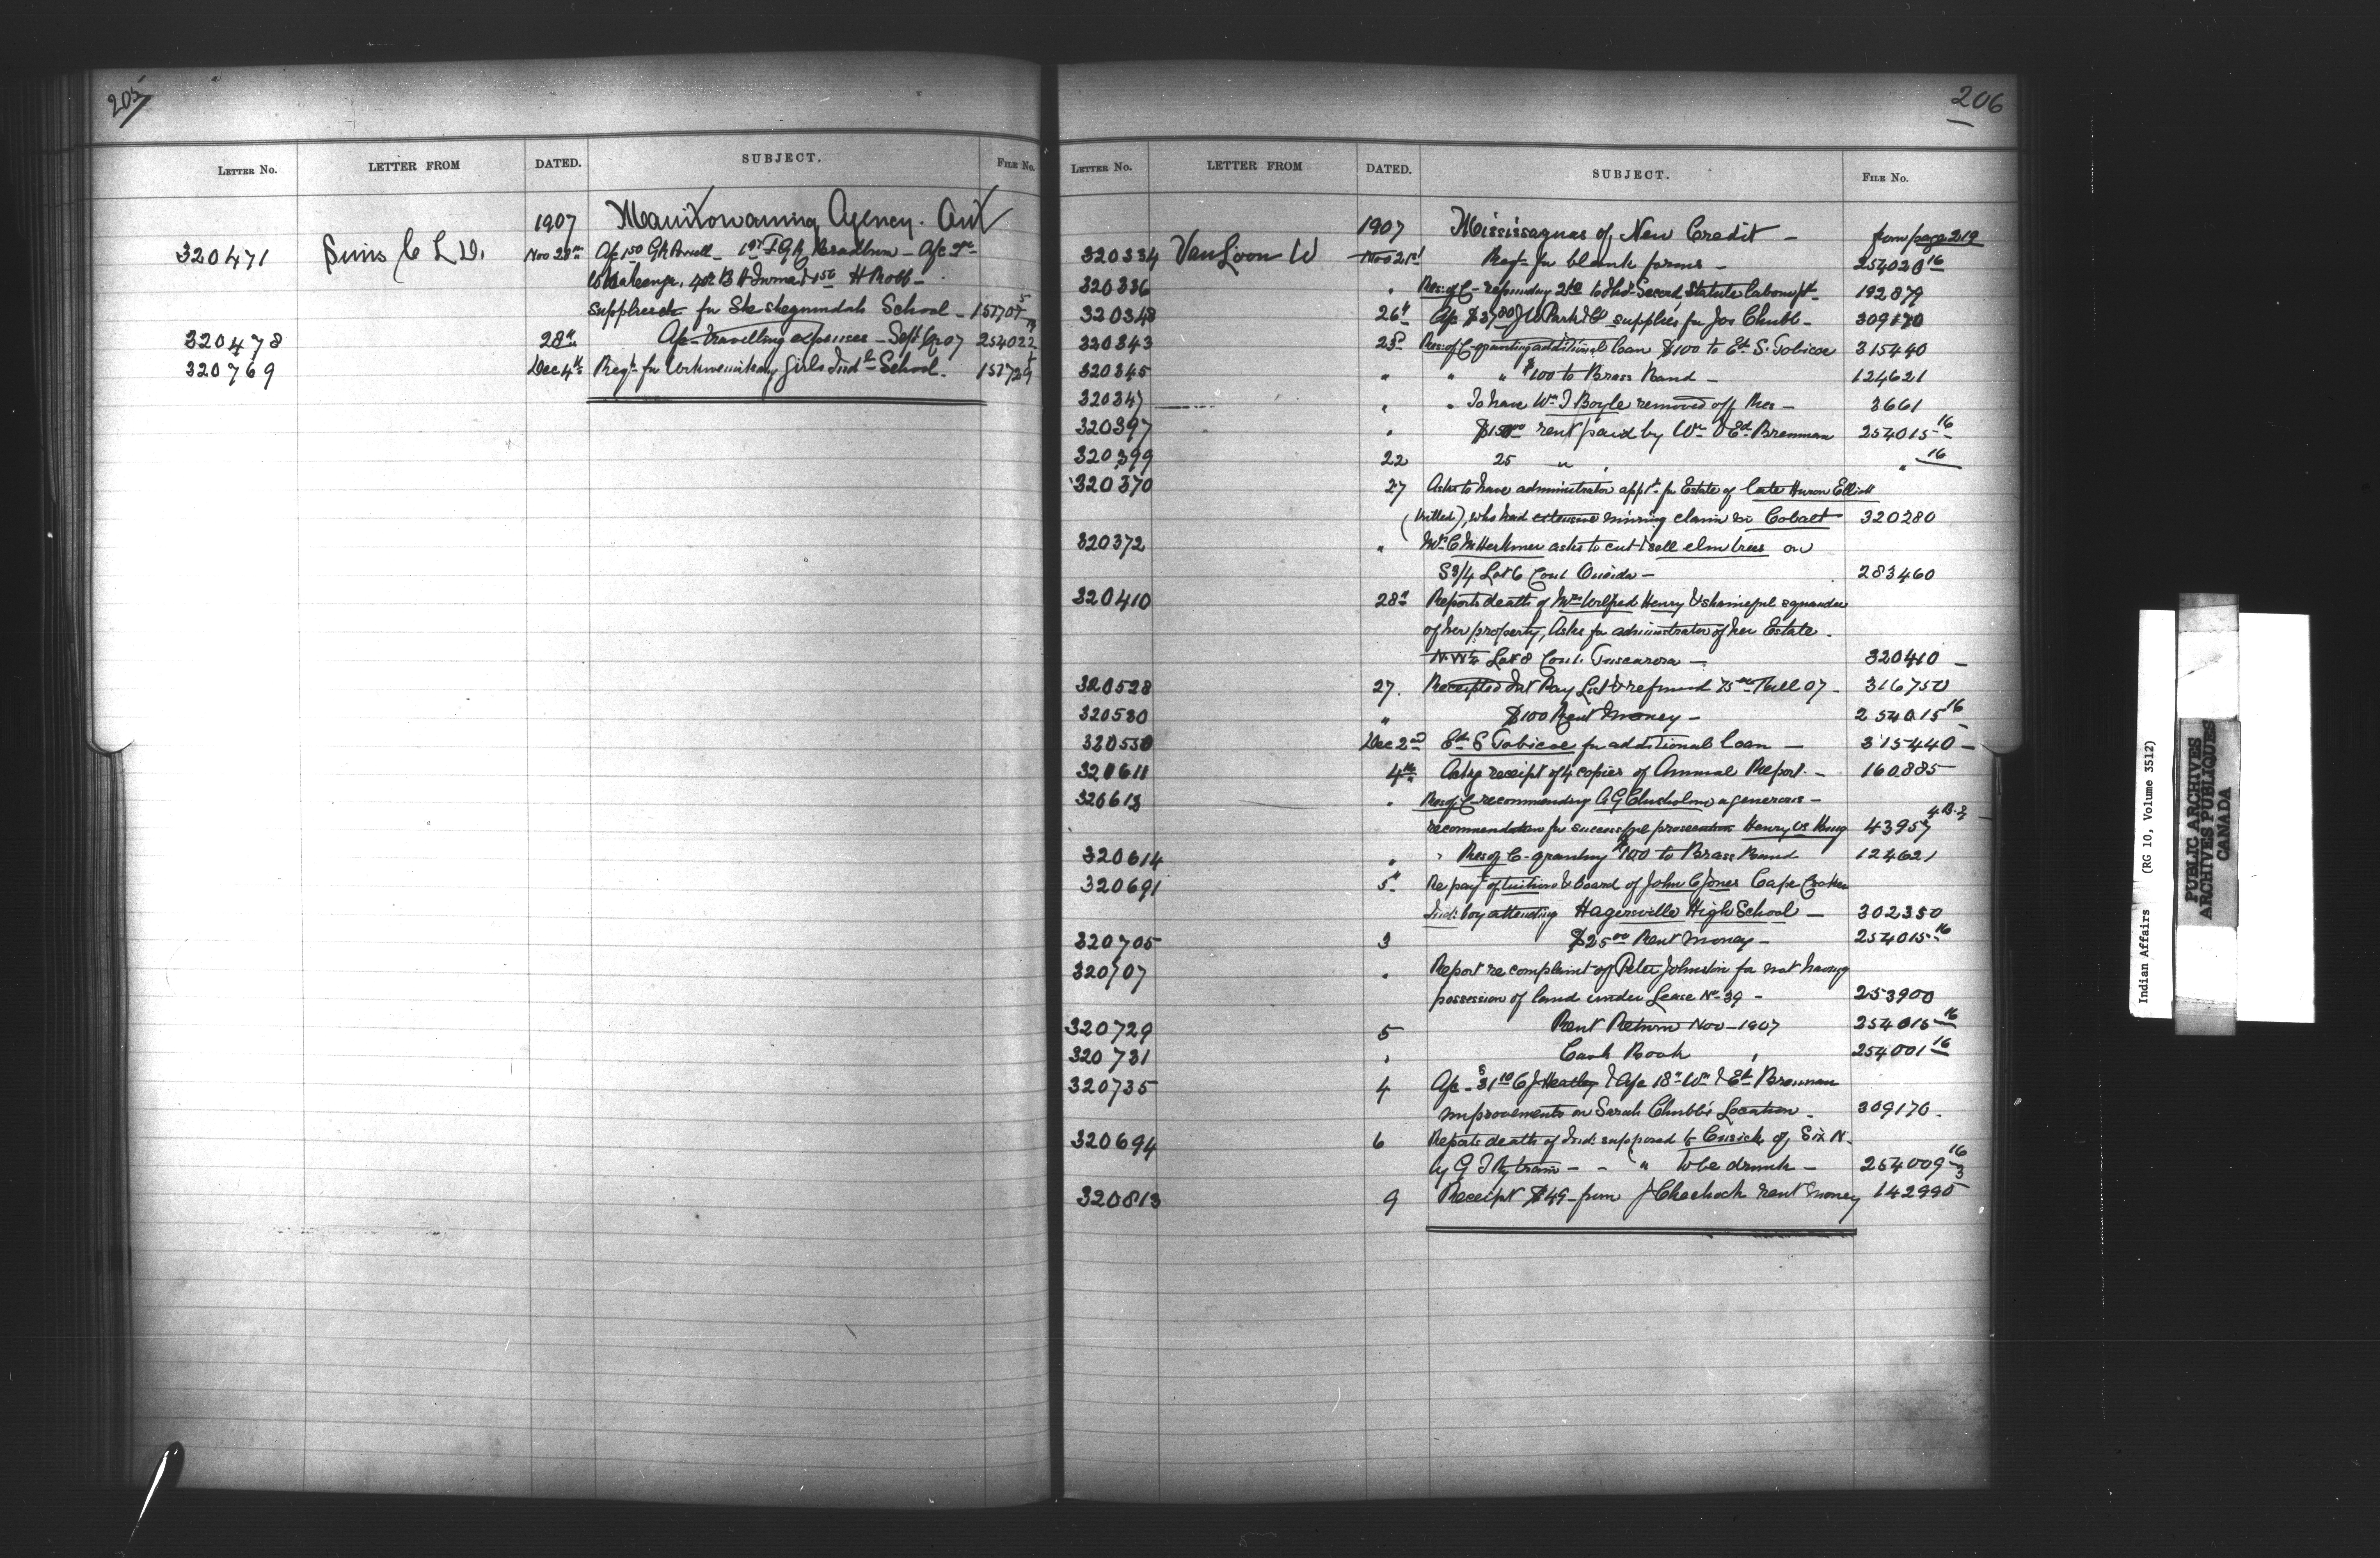 205
LETTER NO. LETTER FROM DATED. SUBJECT. FILE NO.
1907 Manitowaning Agency. Ont
320471 Sims C L D. Nov 28th
supplies &c for Sheshegwandah School - 15770
320478 28th A/c travelling expenses - Sept Qr 07 254022
320769 Dec 4th Reqn for Wikwemikong Girls Indl School. 157729
206
LETTER NO. LETTER FROM DATED. SUBJECT. FILE NO.
1907 Mississaguas of New Credit - from page 219
320334 Van Loon W Nov 21st Reqn for blank forms - 254020 16
320336 " Res: of C - refunding to Secord Statute labour 192879
320348 26th A/c $37 80 J W Park & Co supplies for Jos Chubb - 309170
320343 23rd Res: of C - granting additional loan $100 to Ed. S. Tobicoe 315440
320345 " " " $100 to Brass Band - 124621
320347 " " To have Wm J Boyle removed off Res - 3661
320397 " $150 00 rent paid by Wm & Ed. Brennan 254015 16
320399 22 25 " " " 16
320370 27 Asks to have administrator appt. for Estate of late Huron Elliott
(killed), who had extensive mining claim in Cobalt 320280
320372 " Mrs C McHerkmer asks to cut & sell elm trees on
S 3/4 Lot 6 Con 1 Oneida - 283460
320410 28th Reports death of Mrs Wilfred Henry & shameful squander
of her property, Asks for administrator of her Estate.
N. W 1/4 Lot 8 Con 1. Tuscarora - 320410 -
320528 27. Receipted Int Pay List & refund 07 - 316750
320530 " $100 Rent money - 254015 16
320550 Dec 2nd Ed. S Tobicoe for additional loan - 315440 -
320611 4th Ackg receipt of 4 copies of Annual Report. - 160885
320613 " Res: of C - recommending A G Chisholm a generous -
recommendation for successful prosecution Henry vs King 43957
320614 " " Res of C - granting $100 to Brass Band 124621
320691 5th Re payt of tuition & board of John C Jones Cape Croker
Ind: boy attending Hagersville High School - 302350
320705 3 $25 00 Rent money - 254015 16
320707 " Report re complaint of Peter Johnston for not having
possession of land under Lease No. 39 - 253900
320729 5 Rent Return Nov - 1907 254015 16
320731 " Cash Book " 254001 16
320735 4 A/c - $31 10 C J Heatley & A/c 18 Wm & Ed. Brennan
improvements on Sarah Chubb's Location. 309170.
320694 6 Reports death of Ind: supposed to Cusick of Six N.
by G T Ry train - - ( " to be drunk - 254009 16
320813 9 Receipt $49 - from J Cheehock rent money 142990
Indian Affairs (RG 10, Volume 3512)
PUBLIC ARCHIVES
ARCHIVES PUBLIQUES
CANADA